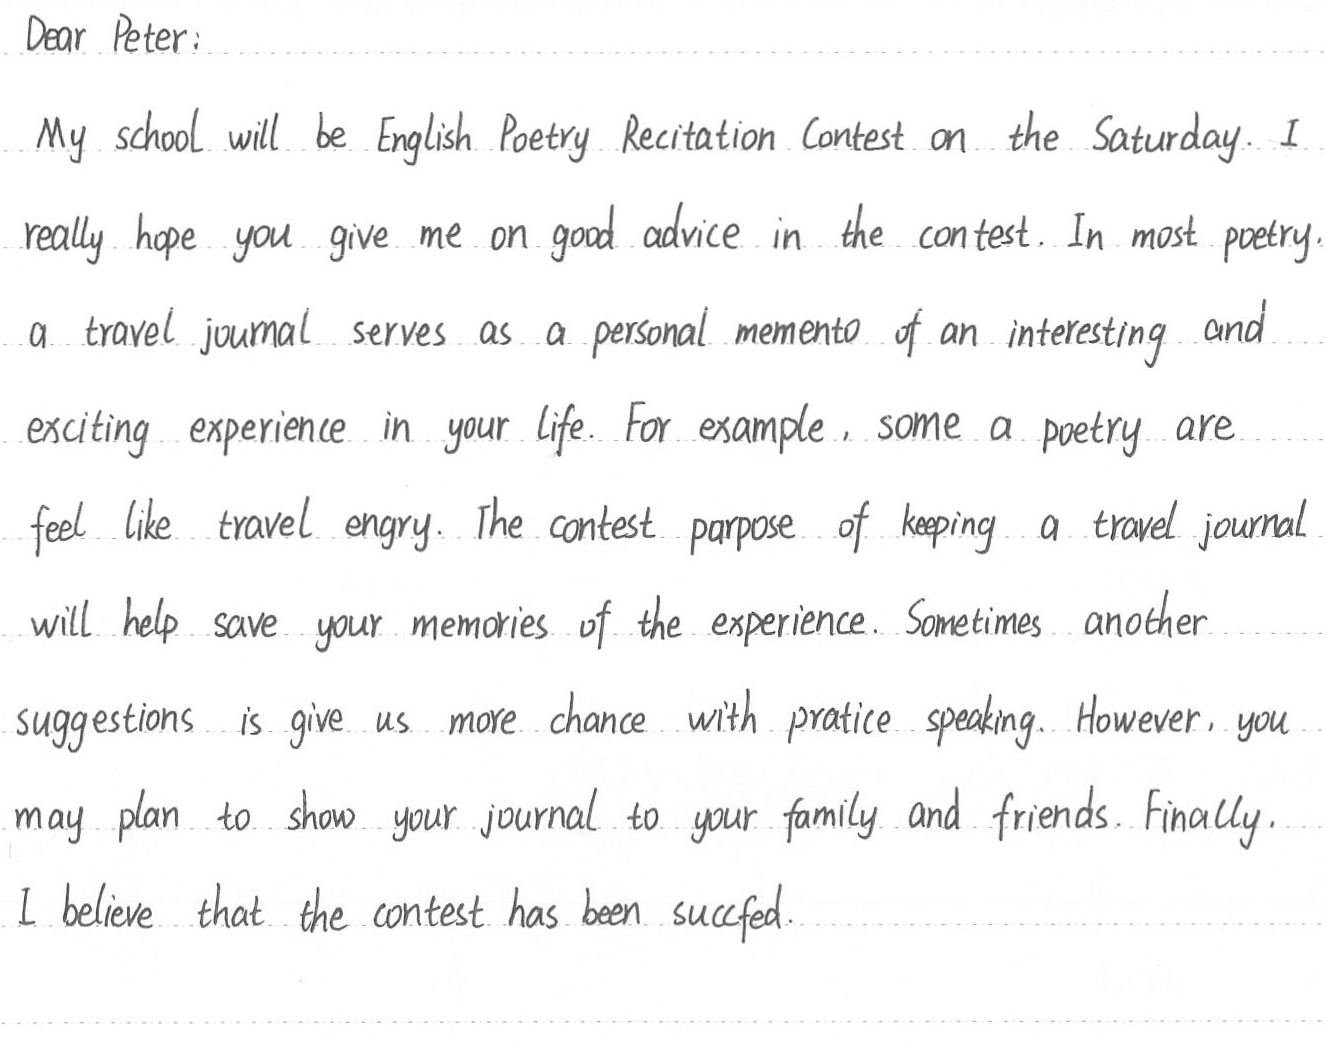 Dear Peter:
My school will be English Poetry Recitation Contest on the Saturday. I
really hope you give me on good advice in the contest. In most poetry.
a travel journal serves as a personal memento of an interesting and
exciting experience in your life. For example, some a poetry are
feel like travel engry. The contest parpose of keeping a travel journal
will help save your memories of the experience. Sometimes another
suggestions is give us more chance with pratice speaking. However, you
may plan to show your journal to your family and friends. Finally.
I believe that the contest has been succfed.